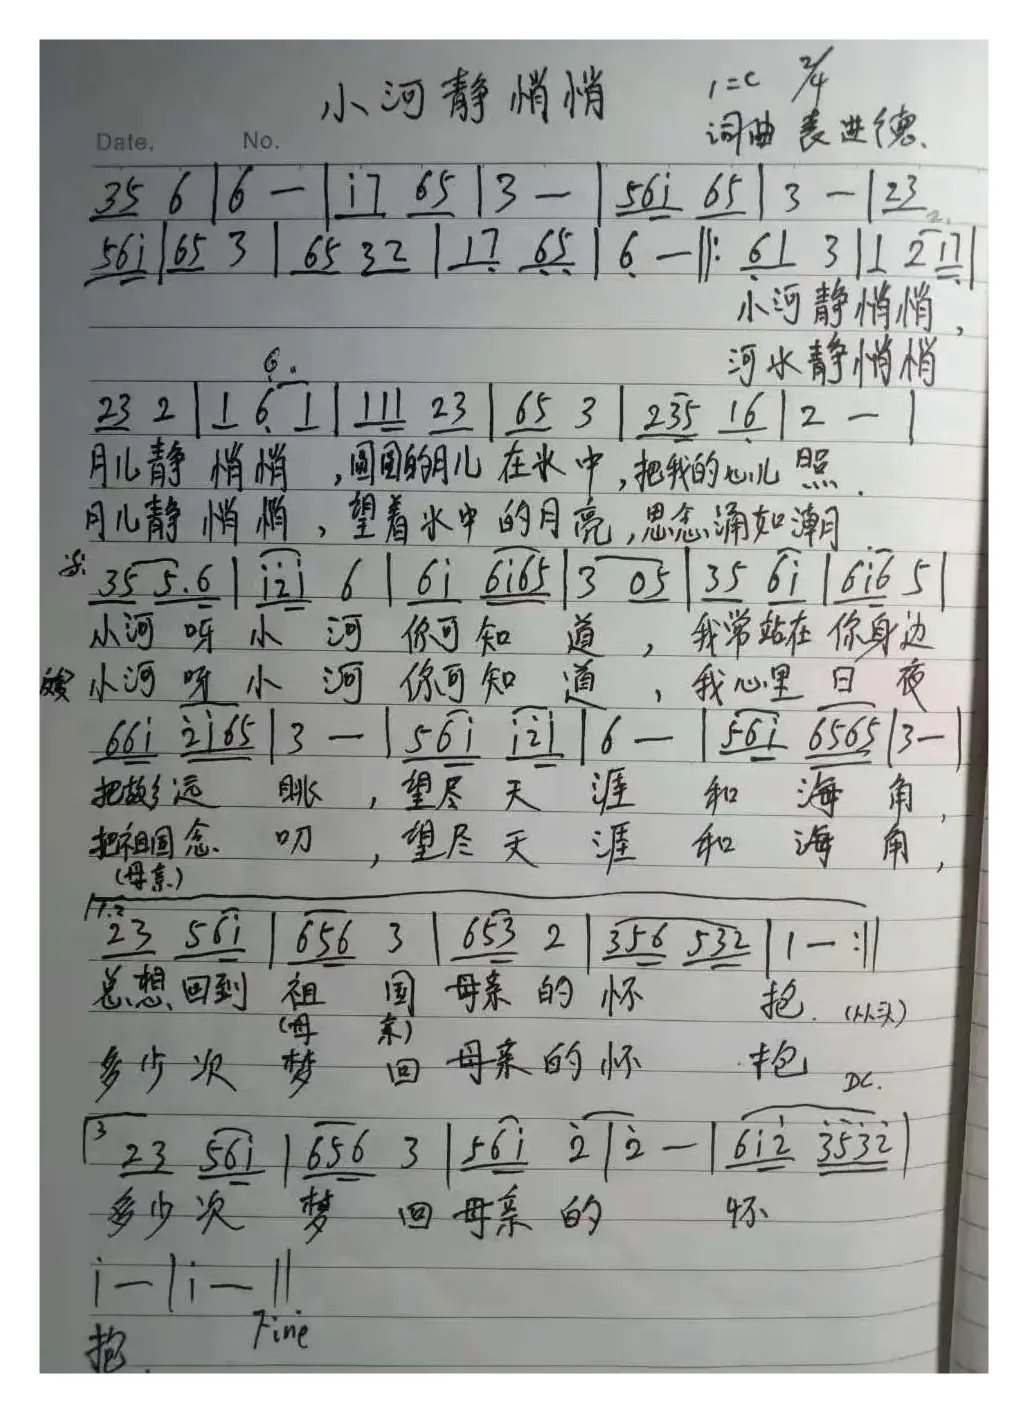 小河静悄悄
1=C 2/4
词曲 袁进德.
Date. No.
35 6 | 6 — | i7 65 | 3 — | 56i 65 | 3 — | 23
56i | 65 3 | 65 32 | 17 65 | 6 — ||: 61 3 | 1 2 17 |
小河静悄悄,
河水静悄悄
23 2 | 1 6 1 | 111 23 | 65 3 | 235 16 | 2 — |
月儿静悄悄,圆圆的月儿在水中,把我的心儿照.
月儿静悄悄,望着水中的月亮,思念涌如潮
35 5.6 | i2i 6 | 6i 6i65 | 3 05 | 35 6i | 6i6 5 |
小河呀小河你可知道,我常站在你身边
小河呀小河你可知道,我心里日夜
66i 2i65 | 3 — | 56i i2i | 6 — | 56i 6565 | 3— |
把故乡远眺,望尽天涯和海角,
把祖国念叨,望尽天涯和海角,
(母亲)
1.2
23 56i | 656 3 | 653 2 | 356 532 | 1 — :||
总想回到祖国母亲的怀抱. (从头)
(母亲)
多少次梦回母亲的怀抱 DC.
3
23 56i | 656 3 | 56i 2 | 2 — | 6i2 3532 |
多少次梦回母亲的怀
i — | i — ||
抱. Fine